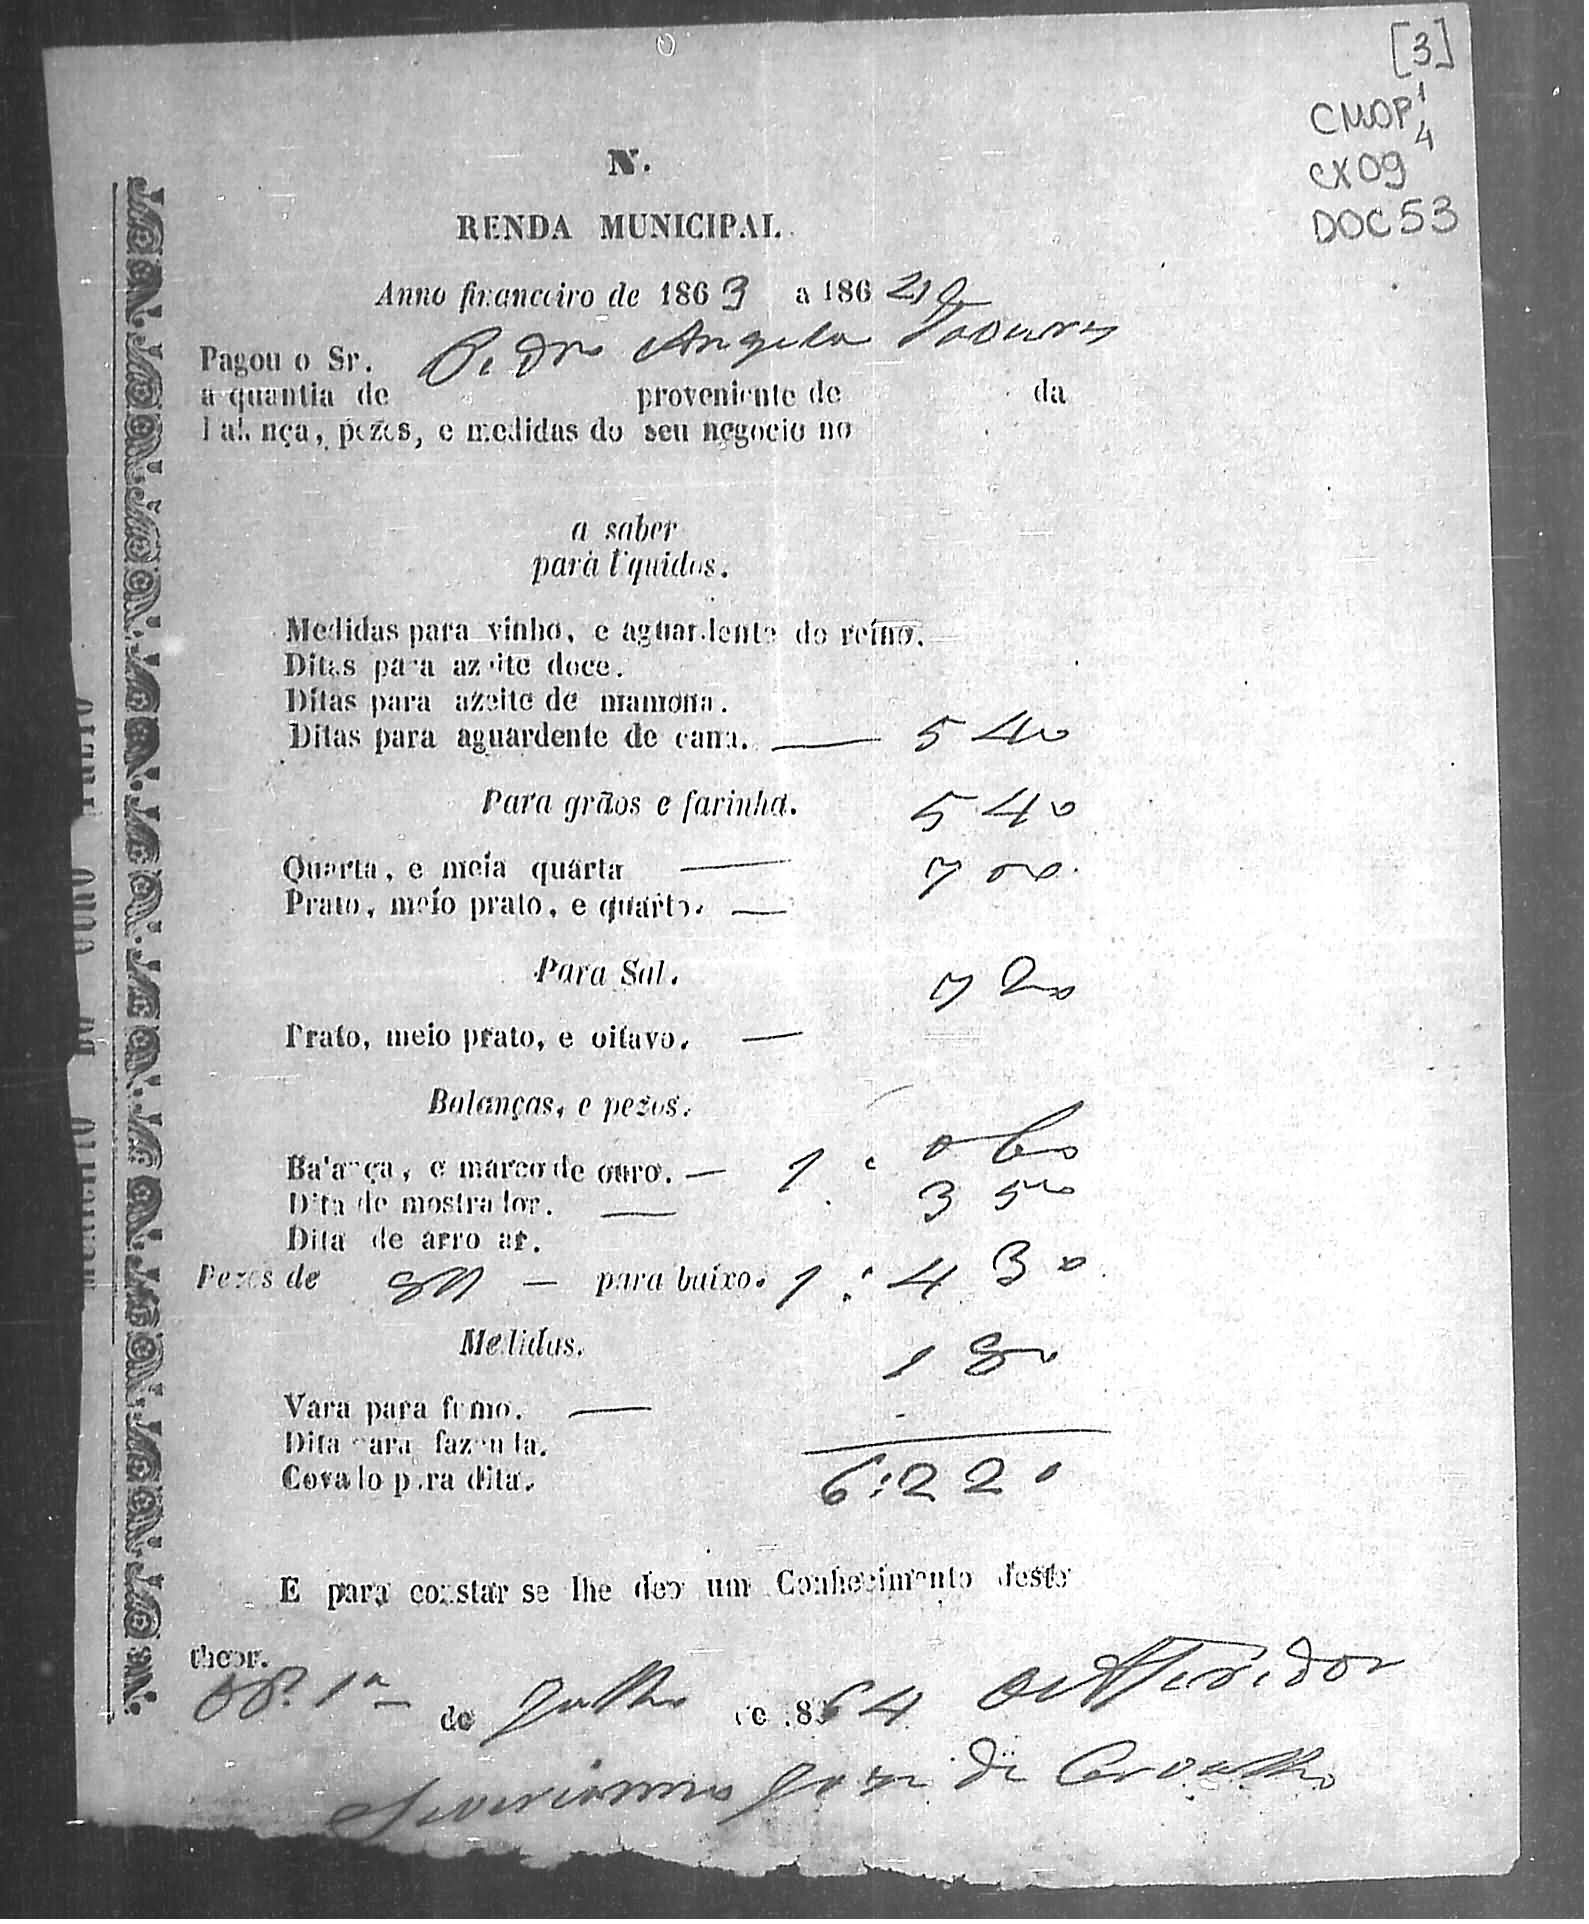 [3]
CMOP 1/4
CX 09
DOC 53
N.
RENDA MUNICIPAL.
Anno financeiro de 1863 a 186
Pagou o Sr. Pedro Angelo Tavares
a quantia de proveniente de da
balança, pezos, e medidas do seu negocio no
a saber
para liquidos.
Medidas para vinho, e aguardente do reino.
Ditas para azeite doce.
Ditas para azeite de mamona.
Ditas para aguardente de cana. — 540
Para grãos e farinha. 540
Quarta, e meia quarta — 700
Prato, meio prato, e quarto. —
Para Sal. 720
Prato, meio prato, e oitavo. —
Balanças, e pezos.
Balança, e marco de ouro. — 1:060
Dita de mostrador. — 350
Dita de arrobar.
Pezos de — para baixo. 1:430
Medidas. 180
Vara para fumo. —
Dita para fazenda.
Covado para dita. 6:220
E para constar se lhe deo um Conhecimento deste
theor.
OP. 1º de Julho de 1864 O Afferidor
José de Carvalho